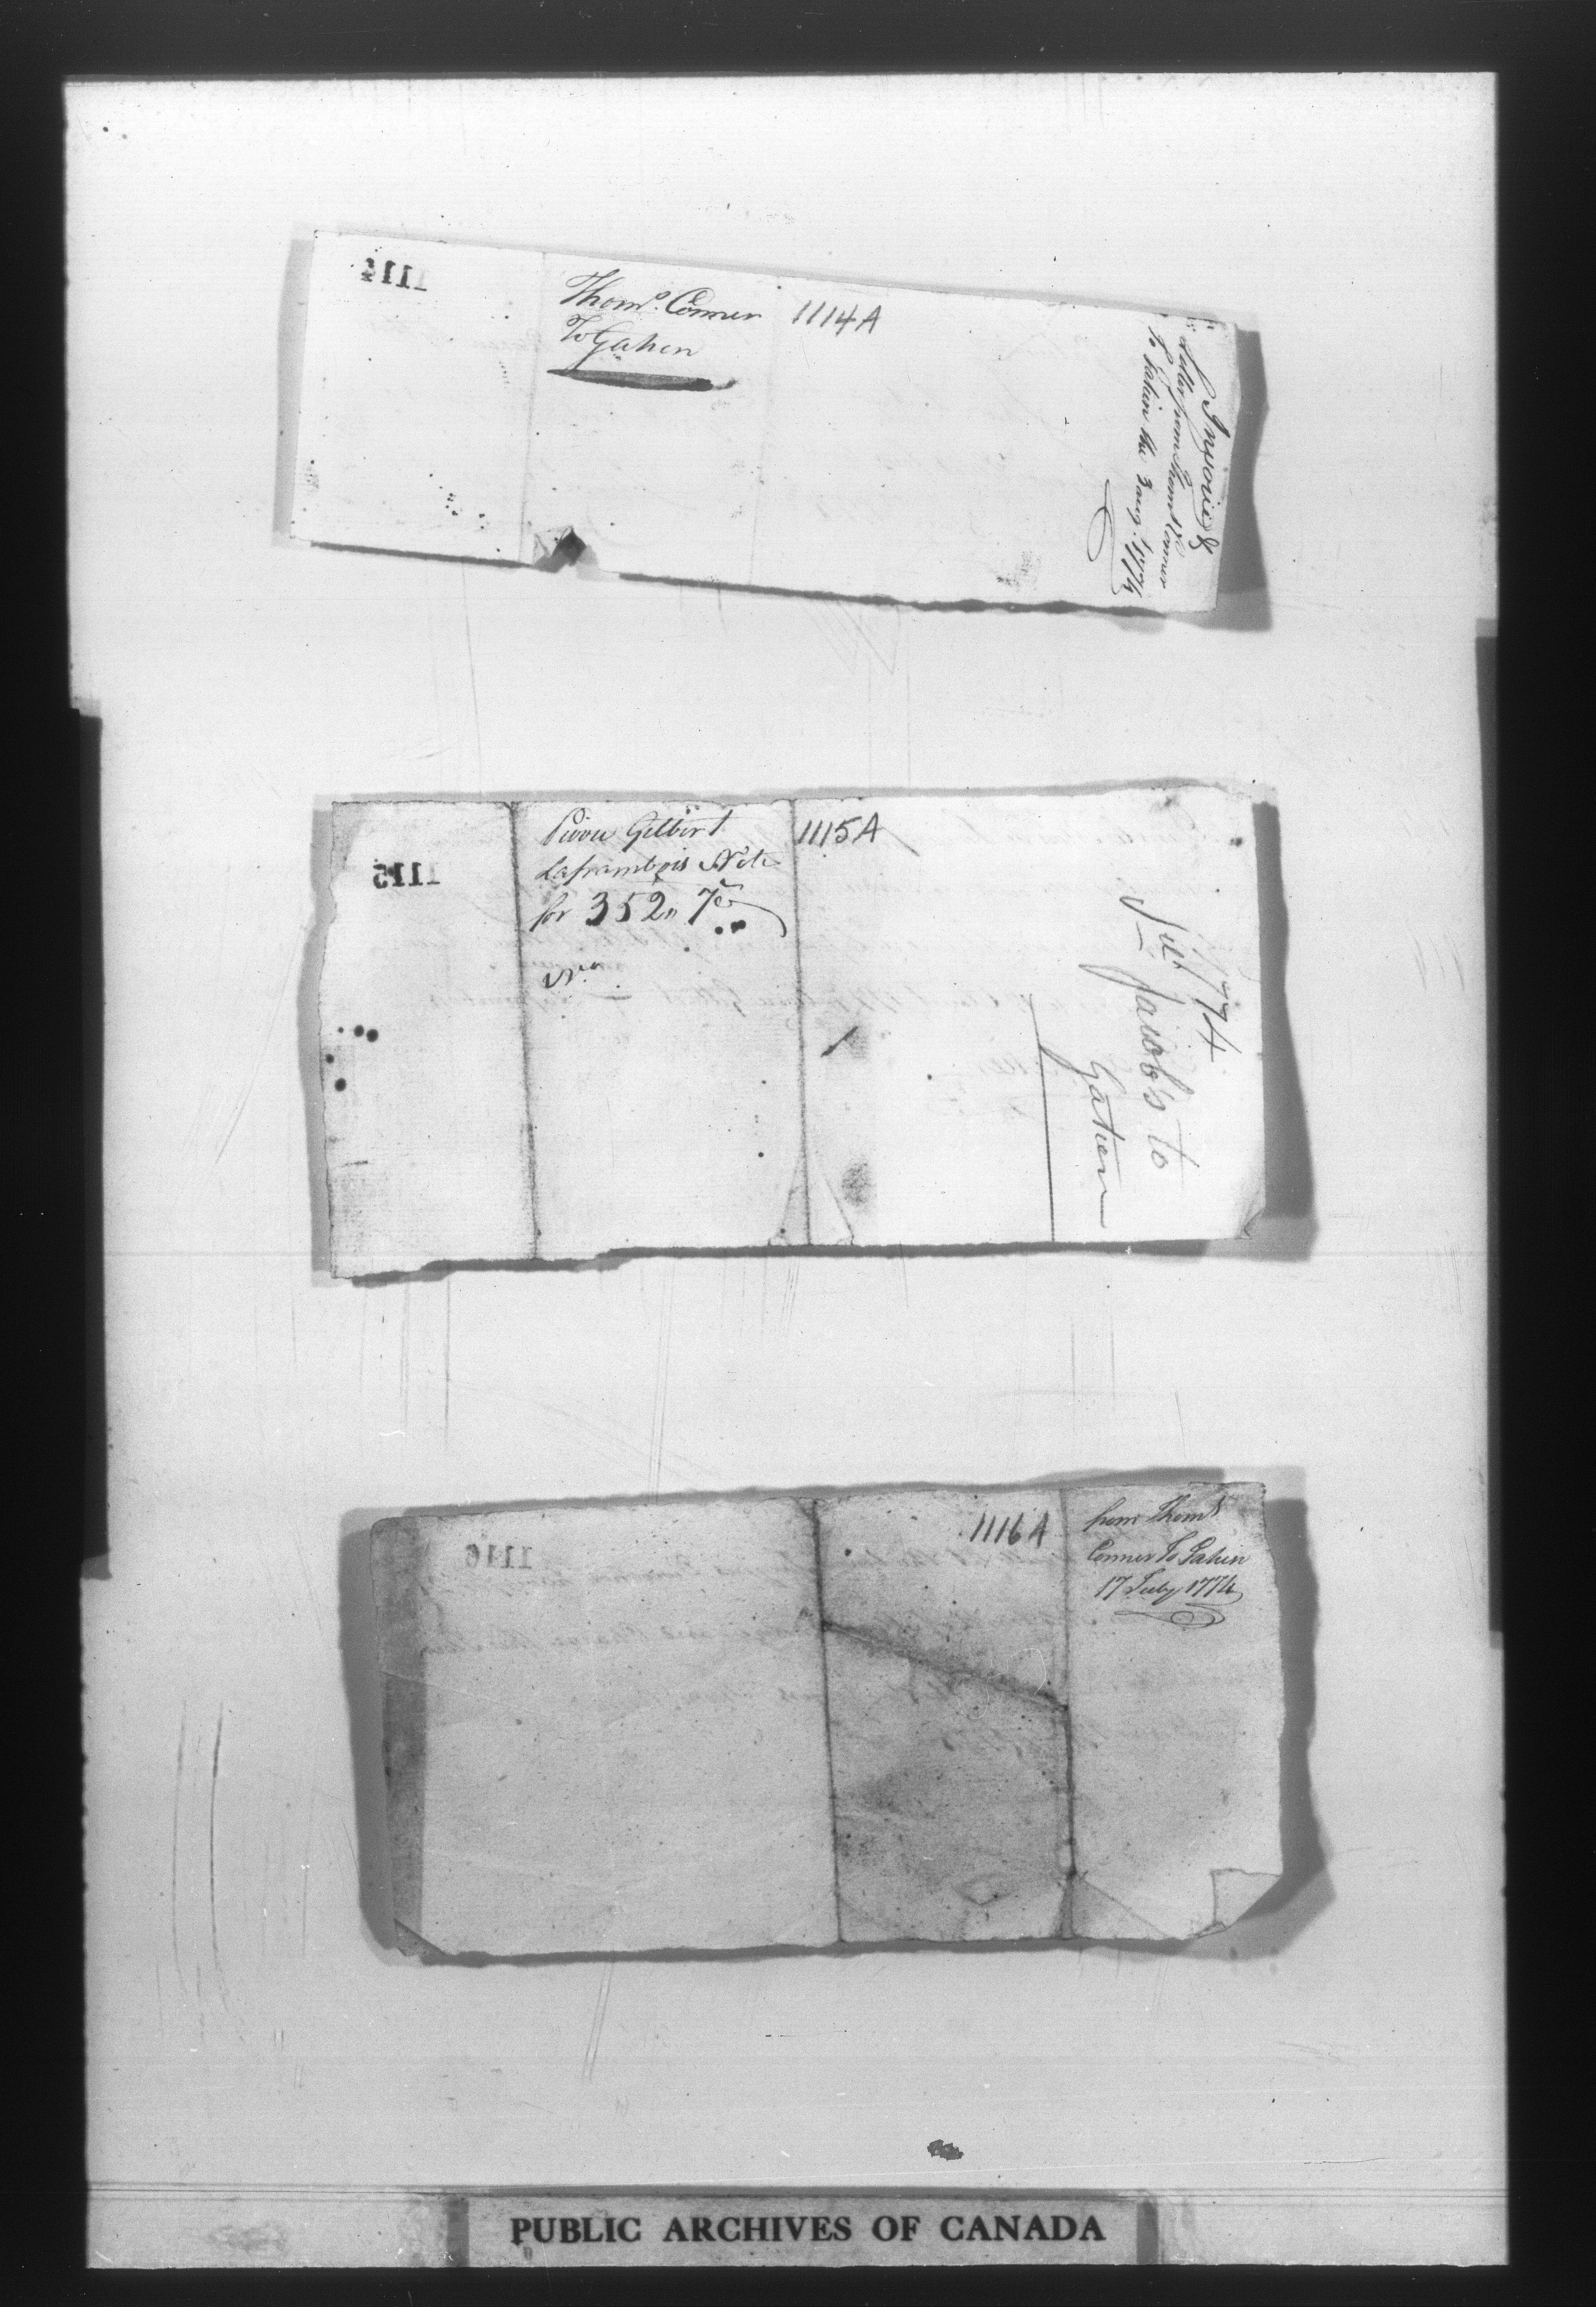 1114
Thoms. Conner
To Gatien
1114A
Invoice &
Letter from Thoms. Conner
To Gatien the 3 aug. 1774
1115
Pierre Gilbert
Laframbois Note
for 352,, 7
No.
1115A
1774
Jacob's to
Gatien
1116
1116A
from Thoms
Conner To Gatien
17 July 1774
PUBLIC ARCHIVES OF CANADA